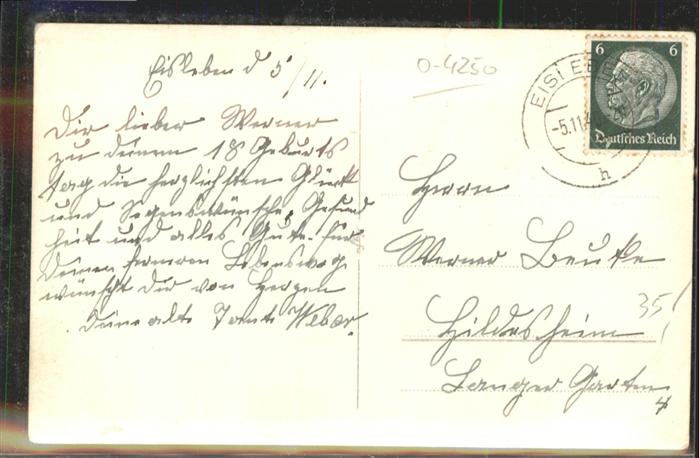 Eisleben d 5/11.
Dir lieber Werner
zu deinem 18 Geburts
tag die herzlichsten Glück
und Segenswünsche, Gesund
heit und alles Gute für
Deinen ferneren Lebensweg
wünscht Dir von Herzen
Deine alte Tante Weber.
0-4250
EISLEBEN
-5.11.
h
6 6
Deutsches Reich
Herrn
Werner Beuke
Hildesheim
Langer Garten
4
35!